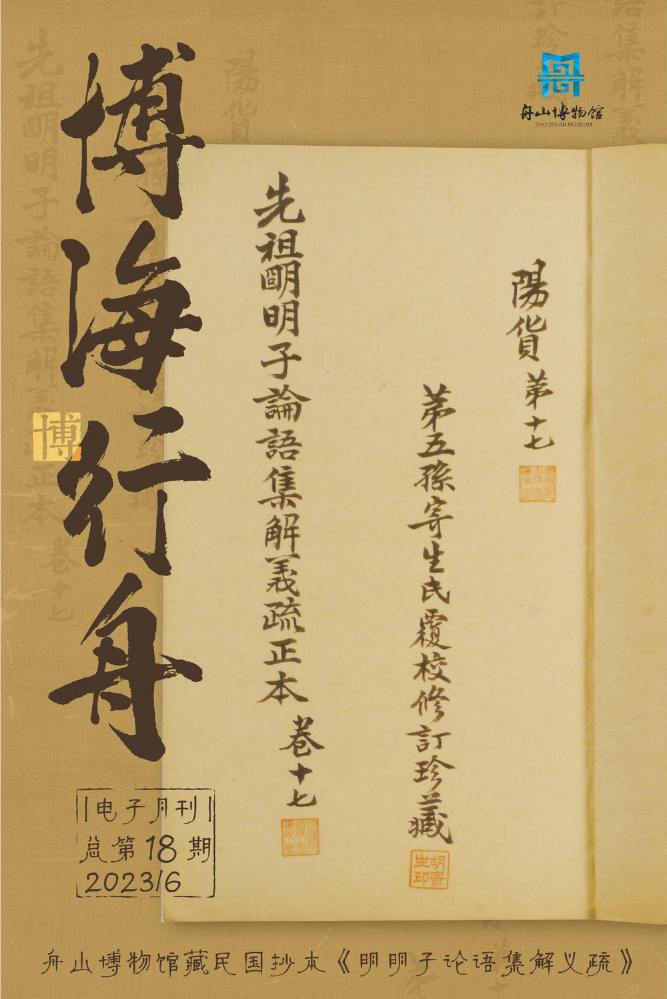 博海行舟
博
舟山博物馆
ZHOUSHAN MUSEUM
陽貨 第十七
第五孫寄生氏覆校修訂珍藏
胡寄生印
先祖明明子論語集解義疏正本 卷十七
电子月刊
总第18期
2023/6
舟山博物馆藏民国抄本《明明子论语集解义疏》